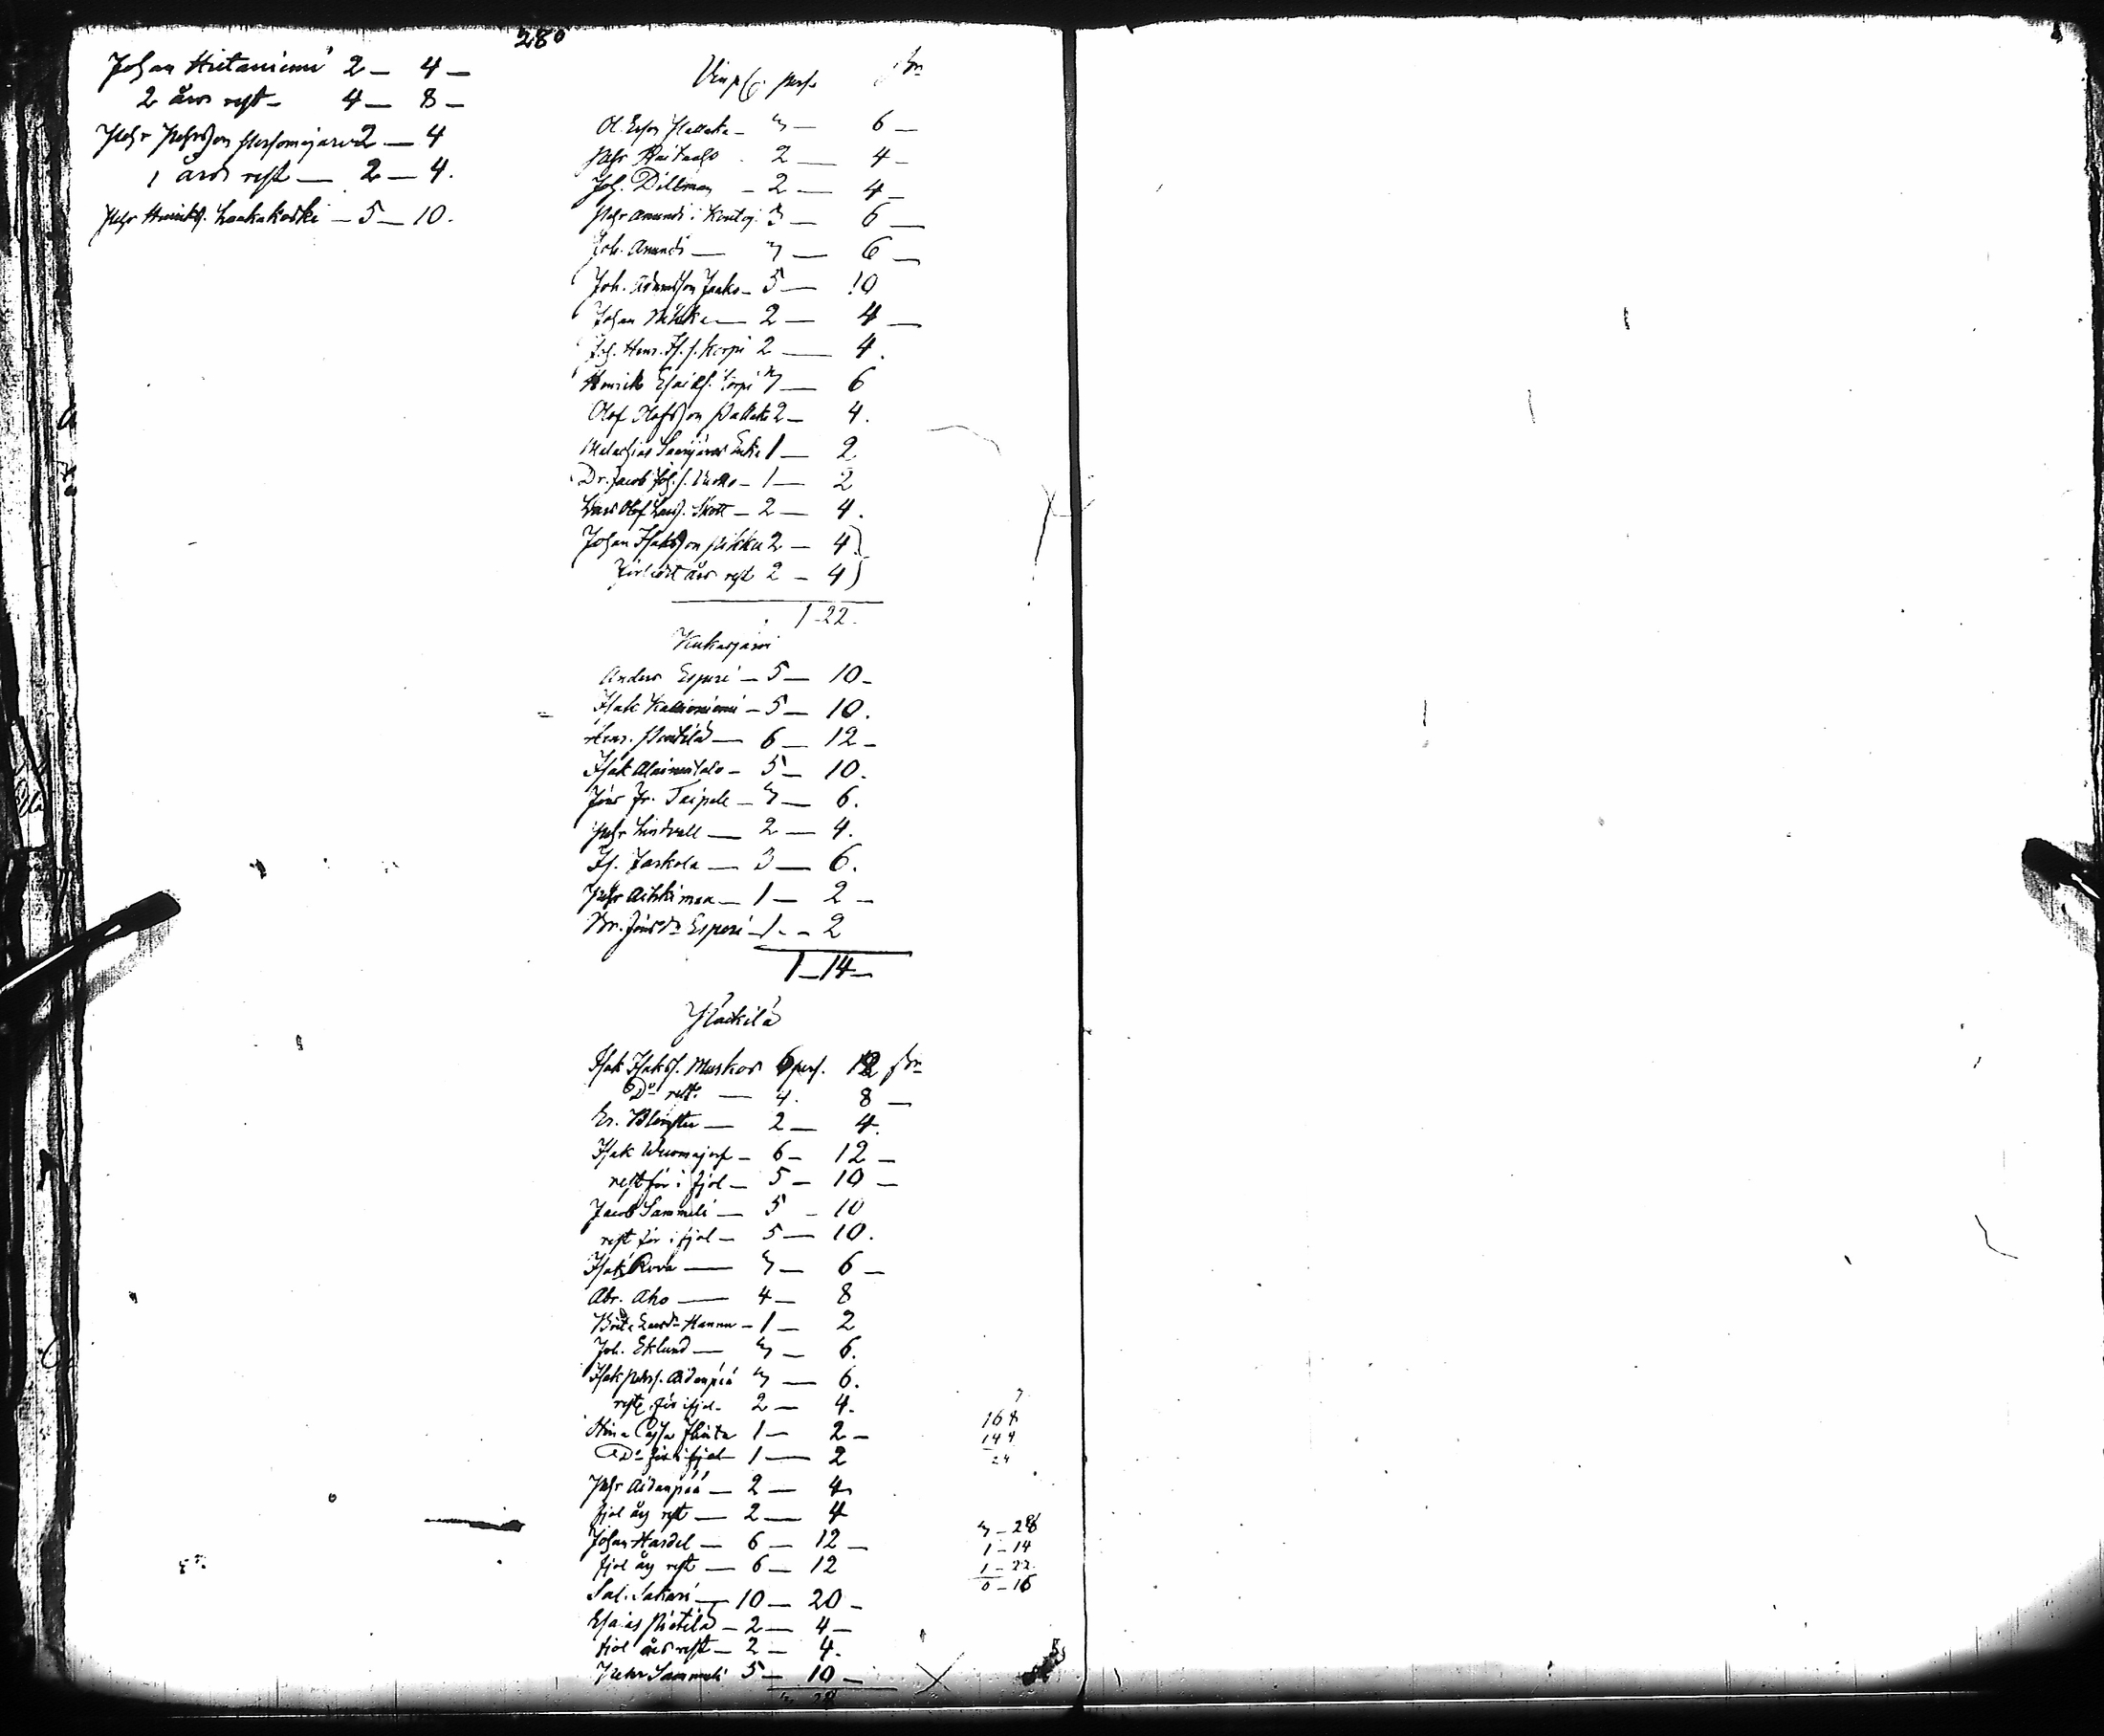 280
Johan Hietaniemi 2 — 4 —
2 års rest — 4 — 8 —
Pehr Pehrsson 2 — 4
1 års rest — 2 — 4.
Pehr Henriks. Laakakoski — 5 — 10.
pers.
Ol. Ersson Pallaka — 3 — 6 —
Pehr Raitaaho 2 — 4 —
Joh. Dillman — 2 — 4 —
Pehr Anundi i 3 — 6 —
Joh. Anundi — 3 — 6 —
Joh. Adamsson Jaako — 5 — 10
Johan — 2 — 4 —
Joh. Henr. Is. s. Korpi 2 — 4.
Henrik Esaias. Korpi 3 — 6
Olof Olofsson Pallaka 2 — 4.
Malachias Saarijärvi Enka 1 — 2
Dr. Jacob Joh. s. — 1 — 2
Olof Lars. Skott — 2 — 4.
Johan Isaksson Pikku 2 — 4)
års rest 2 — 4)
1 — 22.
Kukasjärvi
Anders Esperi — 5 — 10 —
Isak Kallioniemi — 5 — 10.
Henr. Penttilä — 6 — 12 —
Isak — 5 — 10.
Jöns Jr. Taipale — 3 — 6.
Pehr Lindvall — 2 — 4.
Is. Jaskola — 3 — 6.
Pehr — 1 — 2 —
Br. Jönsdr Esperi — 1 — 2
1 — 14 —
Isak Isakss. Muskos 6 pers. 12
Do rest. — 4. 8 —
Er. Blomster — 2 4.
Isak — 6 — 12 —
rest för i fjol — 5 — 10 —
Jacob Sammeli — 5 — 10
rest för i fjol — 5 — 10.
Isak Rova — 3 — 6 —
Abr. Aho — 4 — 8
Brita Larsdr Hannu — 1 — 2
Joh. Eklund — 3 — 6.
Isak Pehrs. Aidanpää 3 — 6.
rest för i fjol — 2 — 4.
Cajsa 1 — 2 —
Do för i fjol — 1 — 2
Pehr Aidanpää — 2 — 4
fjol års rest — 2 — 4
Johan Hardel — 6 — 12 —
fjol års rest — 6 — 12
Sal. Sakari — 10 — 20 —
Esaias Pietilä — 2 — 4 —
fjol års rest — 2 — 4.
Pehr Sammeli 5 — 10 —
168
144
24
3 — 28
1 — 14
1 — 22
6 — 16